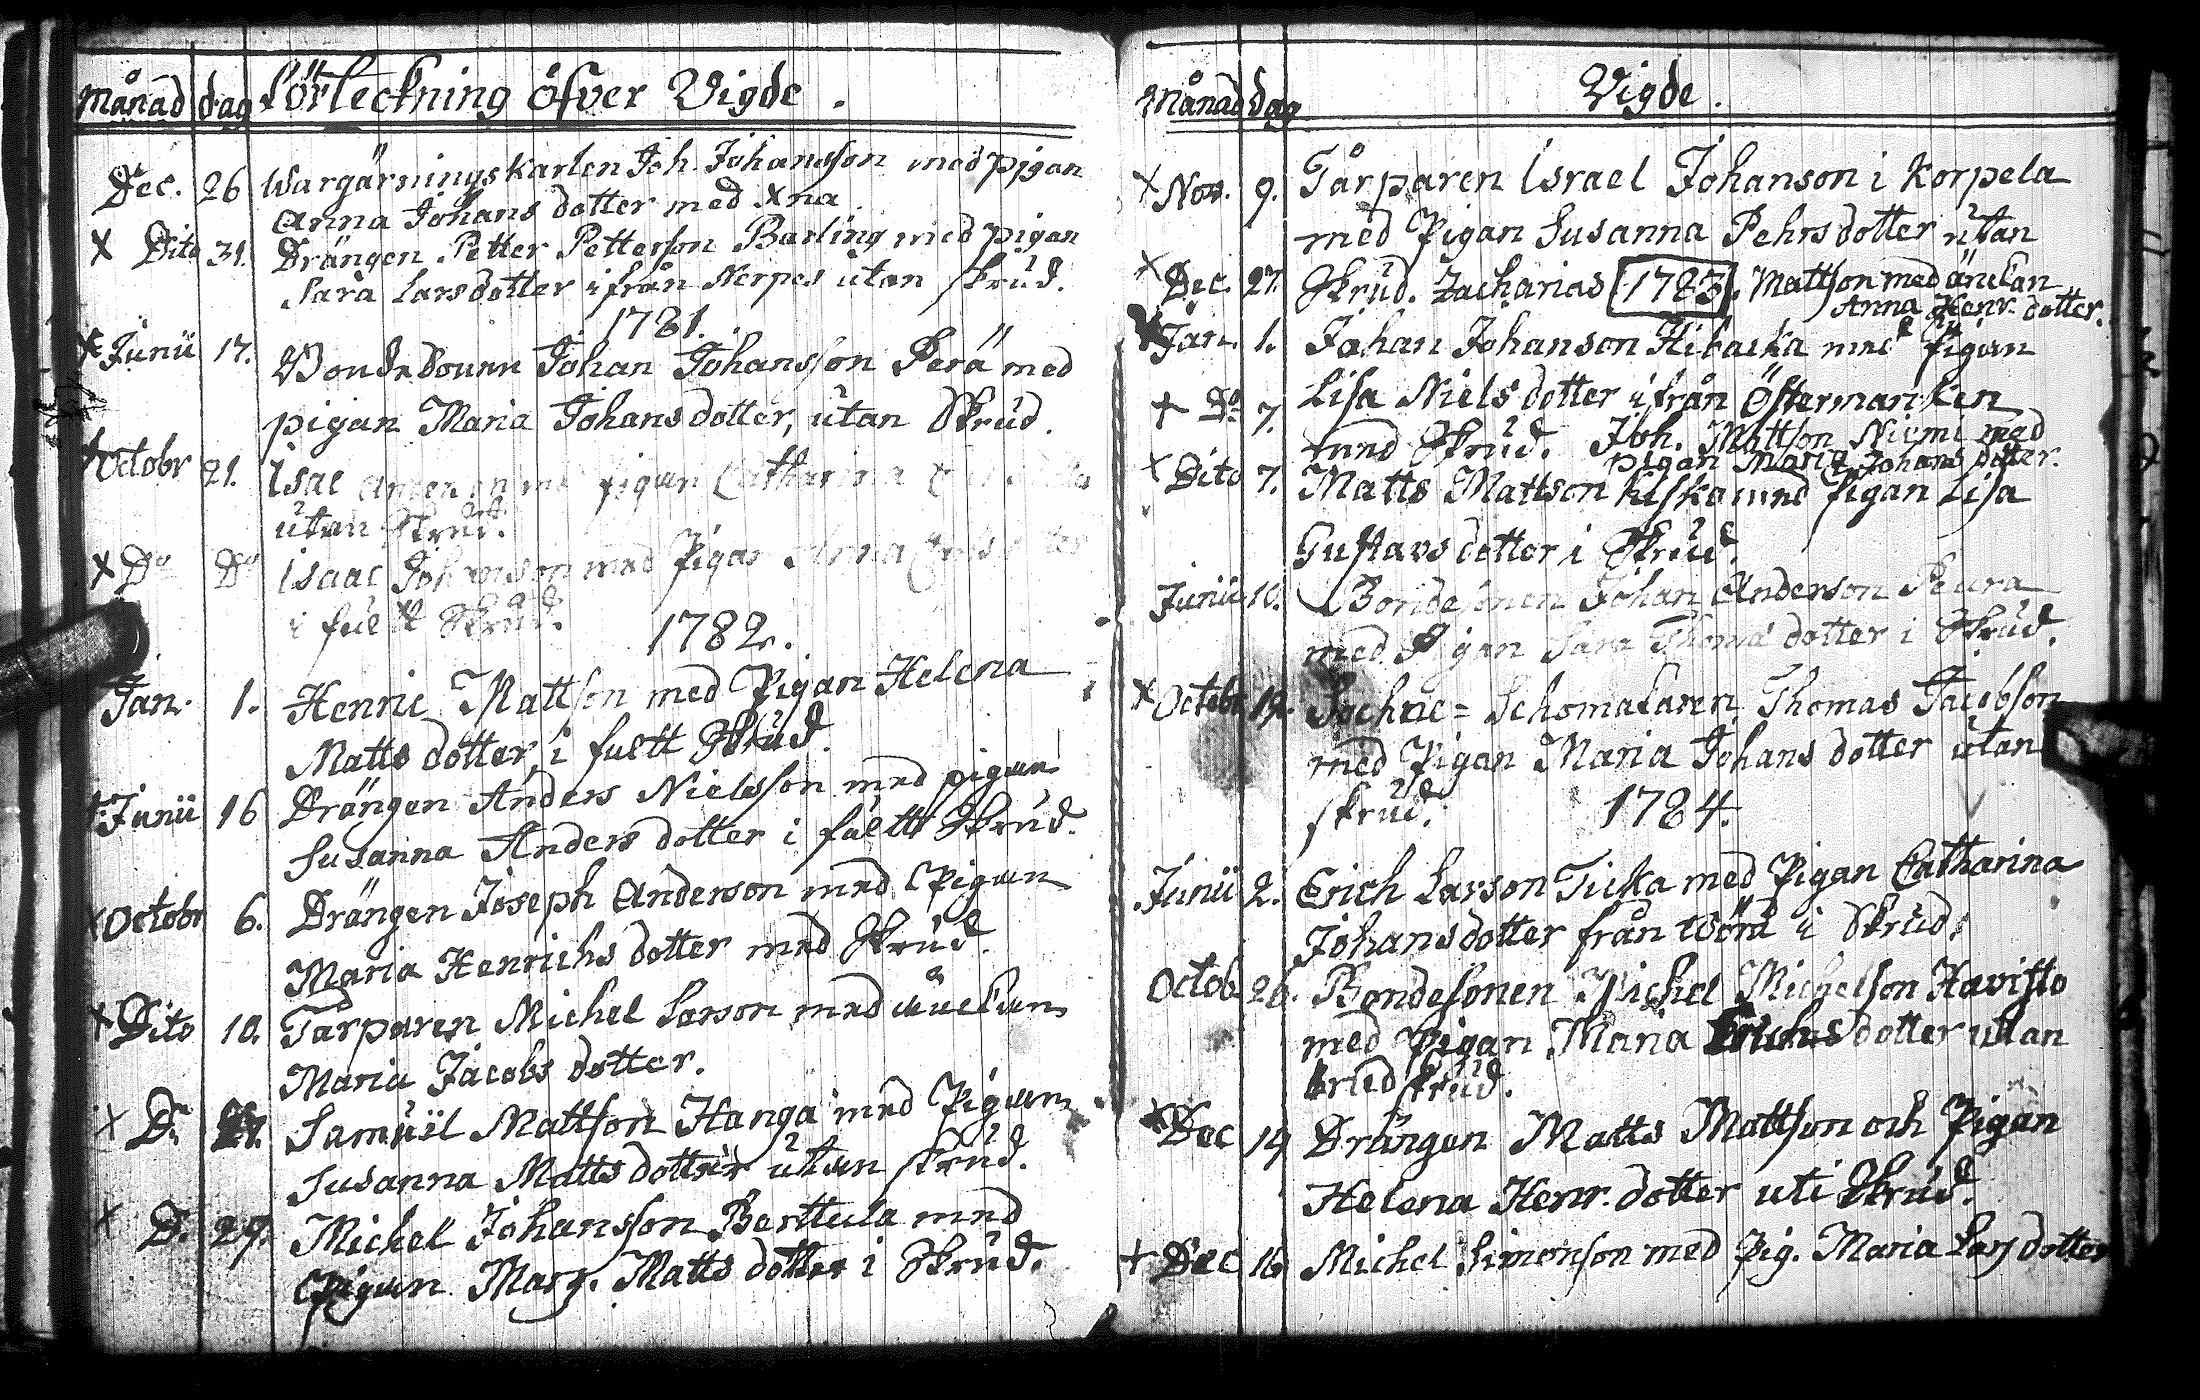 Månad dag Förteckning öfver Vigde.
Dec. 26 Wargärningskarlen Joh. Johansson med pigan
Anna Johans dotter med Xna
X Dito 31. Drängen Petter Petterson Barling med pigan
Sara Larsdotter ifrån Nerpes utan skrud.
1781.
X Junii 17. Bondesonen Johan Johansson Perä med
pigan Maria Johansdotter, utan Skrud.
X Octobr 21. Isac pigan Catharina
utan Skrud.
X Do Do Isaac Johanson med Pigan Anna
i fullt Skrud.
1782.
Jan. 1. Henric Mattson med Pigan Helena
Matts dotter, i fullt Skrud.
Junii 16 Drängen Anders Nielsson med pigan
Susanna Anders dotter i fullt Skrud.
X Octobr 6. Drängen Joseph Anderson med Pigan
Maria Henrichs dotter med Skrud.
X Dito 10. Tårparen Michel Larson med änckan
Maria Jacobs dotter.
X D. Samuil Mattson Hanga med Pigan
Susanna Matts dotter utan skrud.
X D. 27. Michel Johansson Berttula med
Pigan Marg. Matts dotter i Skrud.
Månad dag Vigde.
X Nov. 9. Tårparen Israel Johanson i Korpela
med Pigan Susanna Pehrsdotter utan
X Dec. 27. Skrud. Zacharias 1783. Mattson med änckan
Anna Henr. dotter.
X Jan. 1. Johan Johanson Hibacka med Pigan
Lisa Niels dotter ifrån Östermarken
+ Do 7. med Skrud. Joh. Mattson Niemi med
pigan Maria Johans dotter.
X Dito 7. Matts Mattson Kiska med Pigan Lisa
Gustavs dotter i Skrud.
Junii 10. Bondesonen Johan Anderson Peura
med Pigan Sara Thoma dotter i Skrud.
X Octobr 19. Sochne= Schomakaren Thomas Jacobson
med Pigan Maria Johans dotter utan
skrud. 1784.
Junii 2. Erich Larson Ticka med Pigan Catharina
Johansdotter från Wörå i Skrud.
Octob. 26. Bondesonen Michel Michelson Havisto
med Pigan Maria Erichsdotter utan
brud skrud.
X Dec 19 Drängen Matts Mattson och Pigan
Helena Henr. dotter uti Skrud.
+ Dec 16 Michel Simonson med Pig. Maria Larsdotter